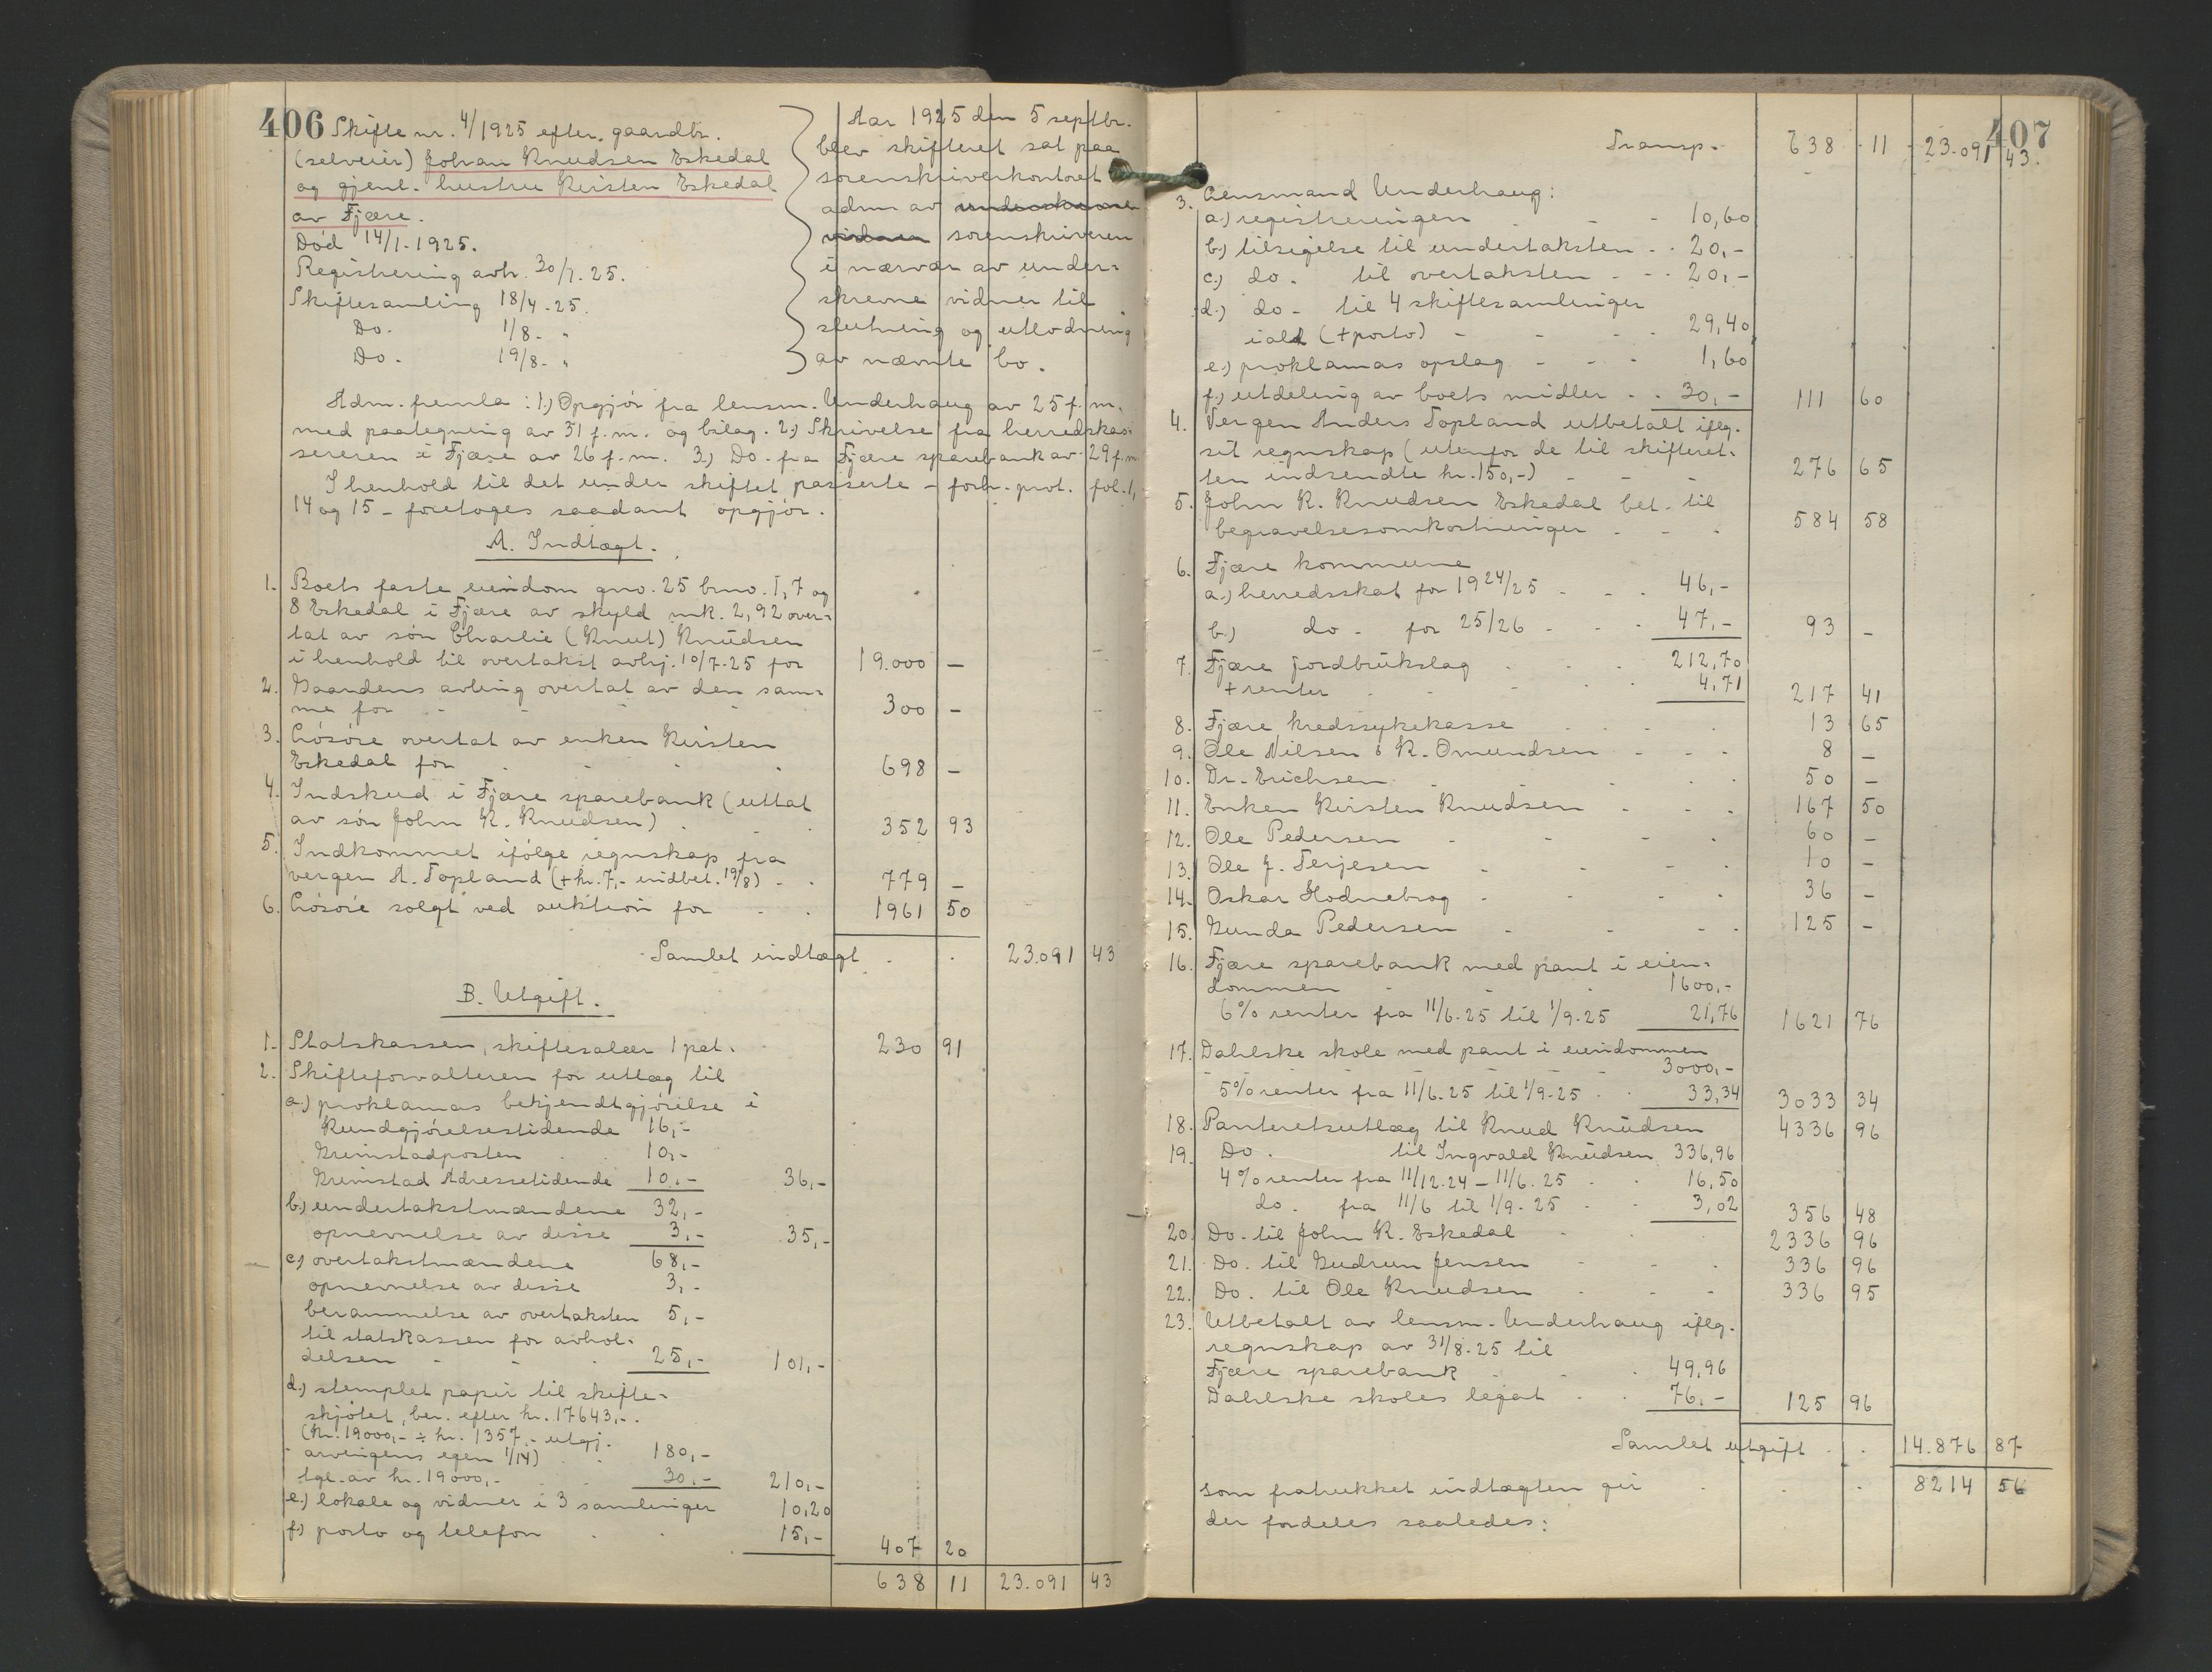 406 Skifte nr. 4/1925 efter gaardbr.
(selveier) Johan Knudsen Eskedal
og gjenl. hustru Kirsten Eskedal
av Fjære.
Död 14/1-1925.
Registrering avh. 30/1.25.
Skiftesamling 18/4-25.
Do. 1/8- "
Do. 19/8- "
Aar 1925 den 5 septbr.
blev skifteret sat paa
sorenskriverkontoret
adm av underskrevne
vidner sorenskriveren
i nærvær av under=
skrevne vidner til
slutning og utlodning
av nævnte bo.
Adm. fremla: 1.) Opgjör fra lensm. Underhaug av 25 f.m.
med paategning av 31 f.m. og bilag. 2.) Skrivelse fra herredskas=
sereren i Fjære av 26 f.m. 3.) Do. fra Fjære sparebank av 29 f.m.
I henhold til det under skiftet passerte - forh. prot. fol. 1,
14 og 15 - foretoges saadant opgjör.
A. Indtægt.
1. Boets faste eiendom gno. 25 bno. 1, 7 og
8 Eskedal i Fjære av skyld mk. 2,92 over=
tat av sön Charlie (Knut) Knudsen
i henhold til overtakst avhj. 10/7-25 for 19.000 -
2. Gaardens avling overtat av den sam=
me for 300 -
3. Lösöre overtat av enken Kirsten
Eskedal for 698 -
4. Indskud i Fjære sparebank (uttat
av sön John K. Knudsen) 352 93
5. Indkommet ifölge regnskap fra
vergen A. Topland (+ kr. 7,- indbet. 19/8) 779 -
6. Lösöre solgt ved auktion for 1961 50
Samlet indtægt 23.091 43
B. Utgift.
1. Statskassen, skiftesalær 1 pct. 230 91
2. Skifteforvalteren for utlæg til
a.) proklamas bekjendtgjörelse i
Kundgjörelsestidende 16,-
Grimstadposten 10,-
Grimstad Adressetidende 10,- 36,-
b.) undertakstmændene 32,-
opnevnelse av disse 3,- 35,-
c.) overtakstmændene 68,-
opnevnelse av disse 3,-
berammelse av overtaksten 5,-
til statskassen for avhol=
delsen 25,- 101,-
d.) stemplet papir til skifte=
skjötet, ber. efter kr. 17643,-
(Kr. 19000,- ÷ kr. 1357,- utgj.
arvingens egen 1/14) 180,-
tgl. av kr. 19000,- 30,- 210,-
e.) lokale og vidner i 3 samlinger 10,20
f.) porto og telefon 15,- 407 20
638 11 23.091 43
407
Transp. 638 11 23.091 43.
3. Lensmand Underhaug:
a.) registreringen 10,60
b.) tilsigelse til undertaksten 20,-
c.) do. til overtaksten 20,-
d.) do - til 4 skiftesamlinger
ialt (+ porto) 29,40
e.) proklamas opslag 1,60
f.) utdeling av boets midler 30,- 111 60
4. Vergen Anders Topland utbetalt iflg.
sit regnskap (utenfor de til skifteret=
ten indsendte kr. 150,-) 276 65
5. John K. Knudsen Eskedal bet. til
begravelsesomkostninger 584 58
6. Fjære kommune
a.) herredsskat for 1924/25 46,-
b.) do - for 25/26 47,- 93 -
7. Fjære jordbrukslag 212,70
+ renter 4,71 217 41
8. Fjære kredssykekasse 13 65
9. Ole Nilsen & K. Omundsen 8 -
10. Dr. Erichsen 50 -
11. Enken Kirsten Knudsen 167 50
12. Ole Pedersen 60 -
13. Ole J. Terjesen 10 -
14. Oskar Hodnebrog 36 -
15. Gunda Pedersen 125 -
16. Fjære sparebank med pant i eien=
dommen 1600,-
6% renter fra 11/6-25 til 1/9-25 21,76 1621 76
17. Dahlske skole med pant i eiendommen
3000,-
5% renter fra 11/6.25 til 1/9-25 33,34 3033 34
18. Panteretsutlæg til Knud Knudsen 4336 96
19. Do. til Ingvald Knudsen 336,96
4% renter fra 11/12.24 - 11/6.25 16,50
do. fra 11/6 til 1/9-25 3,02 356 48
20. Do. til John K. Eskedal 2336 96
21. Do. til Gudrun Jensen 336 96
22. Do. til Ole Knudsen 336 95
23. Utbetalt av lensm. Underhaug iflg.
regnskap av 31/8-25 til
Fjære sparebank 49,96
Dahlske skoles legat 76,- 125 96
Samlet utgift 14.876 87
som fratrukket indtægten gir 8214 56
der fordeles saaledes: